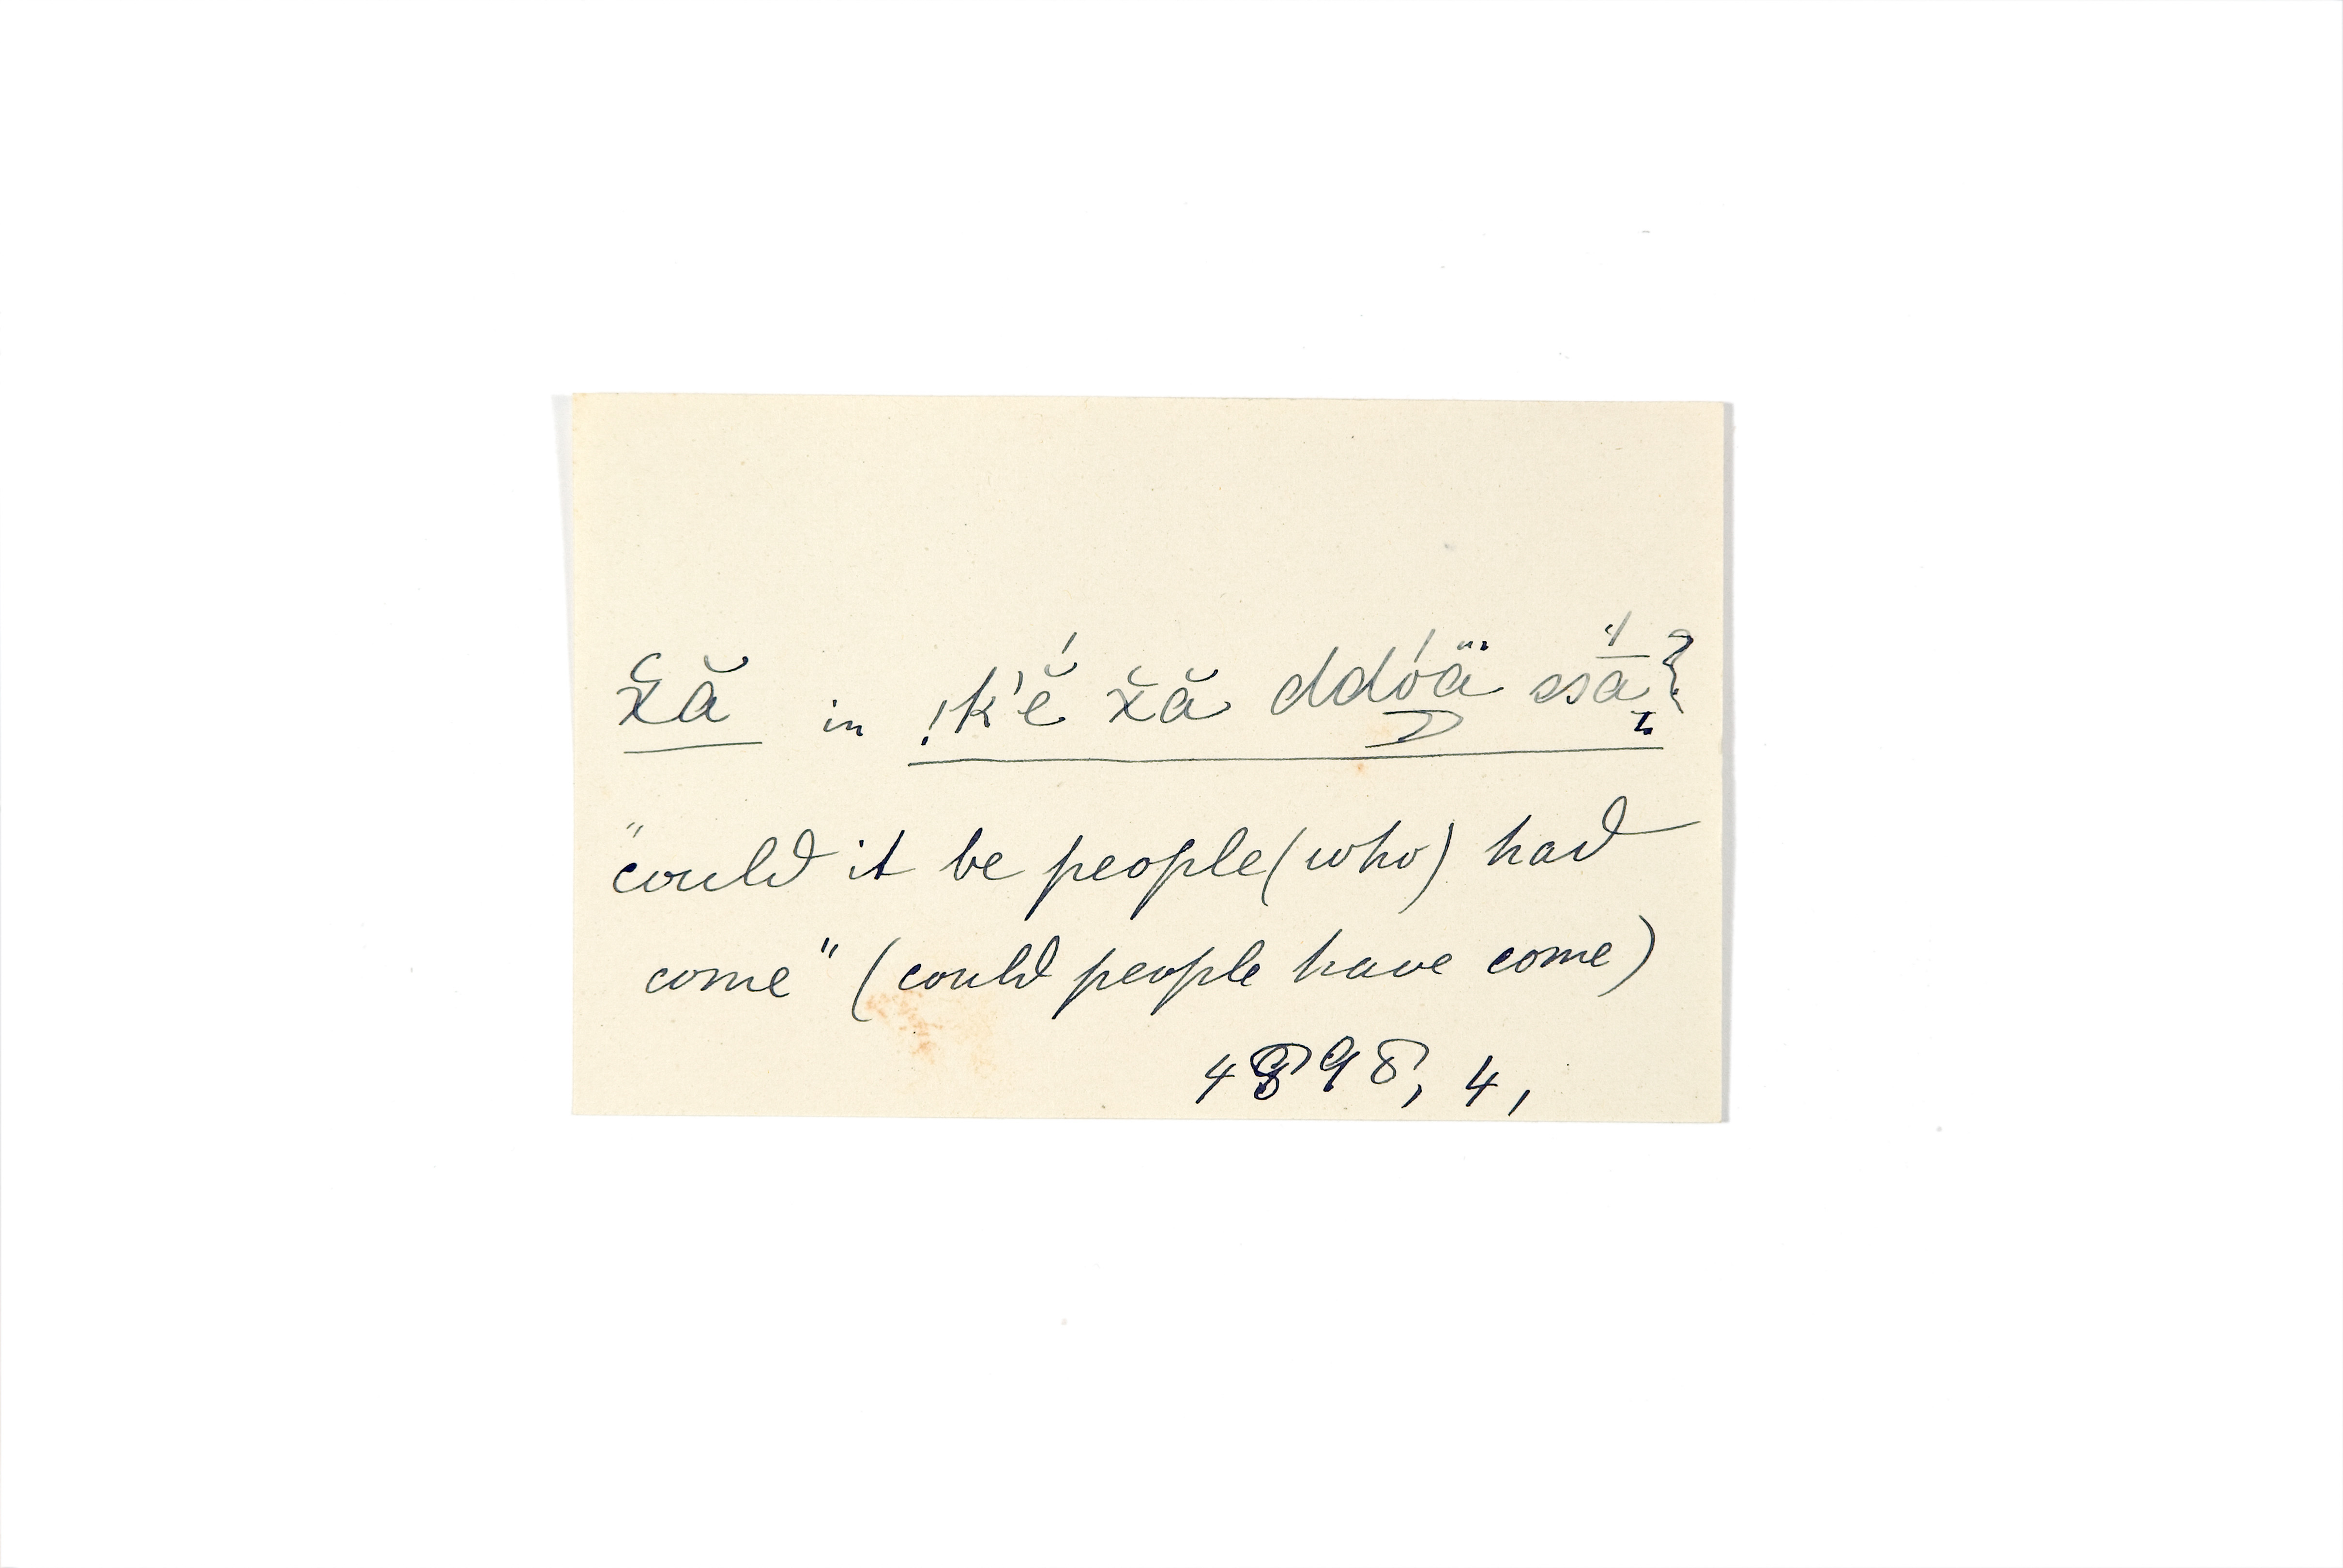 x̆ă in !k'ĕ́ x̆ă ddóä ssā̤́?
"could it be people (who) had
come" (could people have come)
4898, 4,